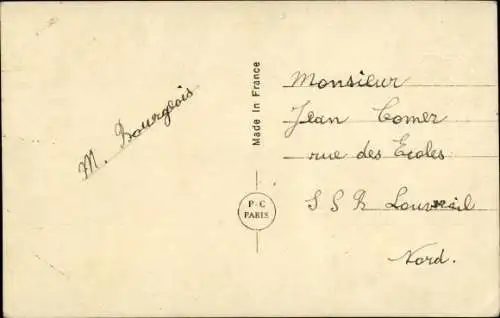 M. Bourgeois
Made In France
P-C
PARIS
Monsieur
Jean Comer
rue des Ecoles
S S R Louvreil
Nord.